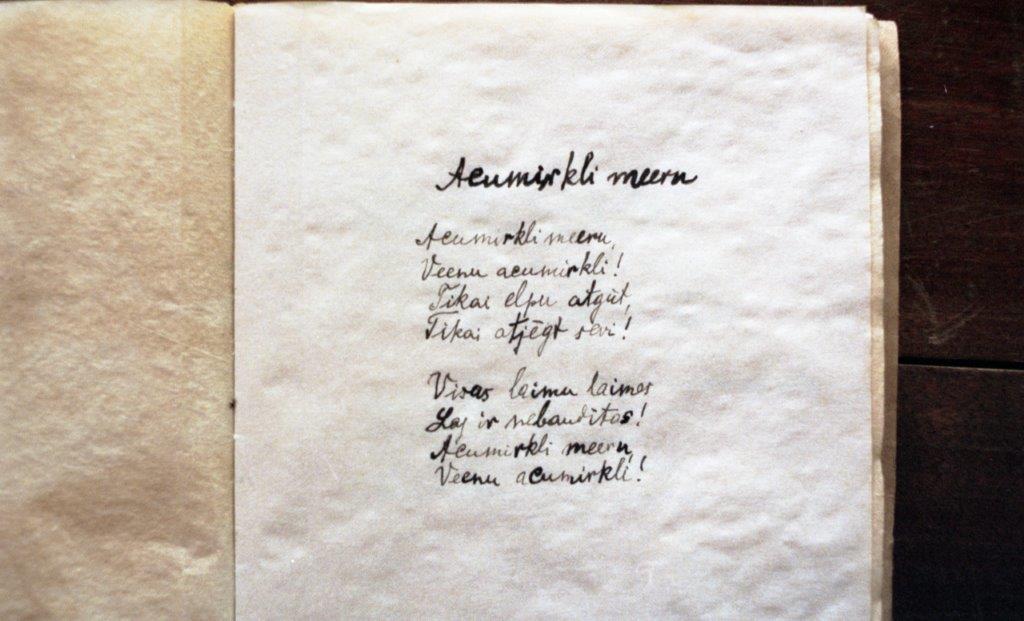 Acumirkli meeru
Acumirkli meeru,
Veenu acumirkli!
Tikai elpu atgūt,
Tikai atjēgt sevi!
Visas laimu laimes
Laj ir nebauditas!
Acumirkli meeru,
Veenu acumirkli!